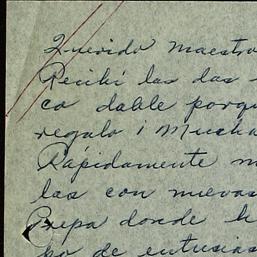 Querido maestro
Recibí las dos
co doble porqu
regalo ¡ Mucha
Rápidamente m
las con nuevas
Prepa donde h
po de entusias